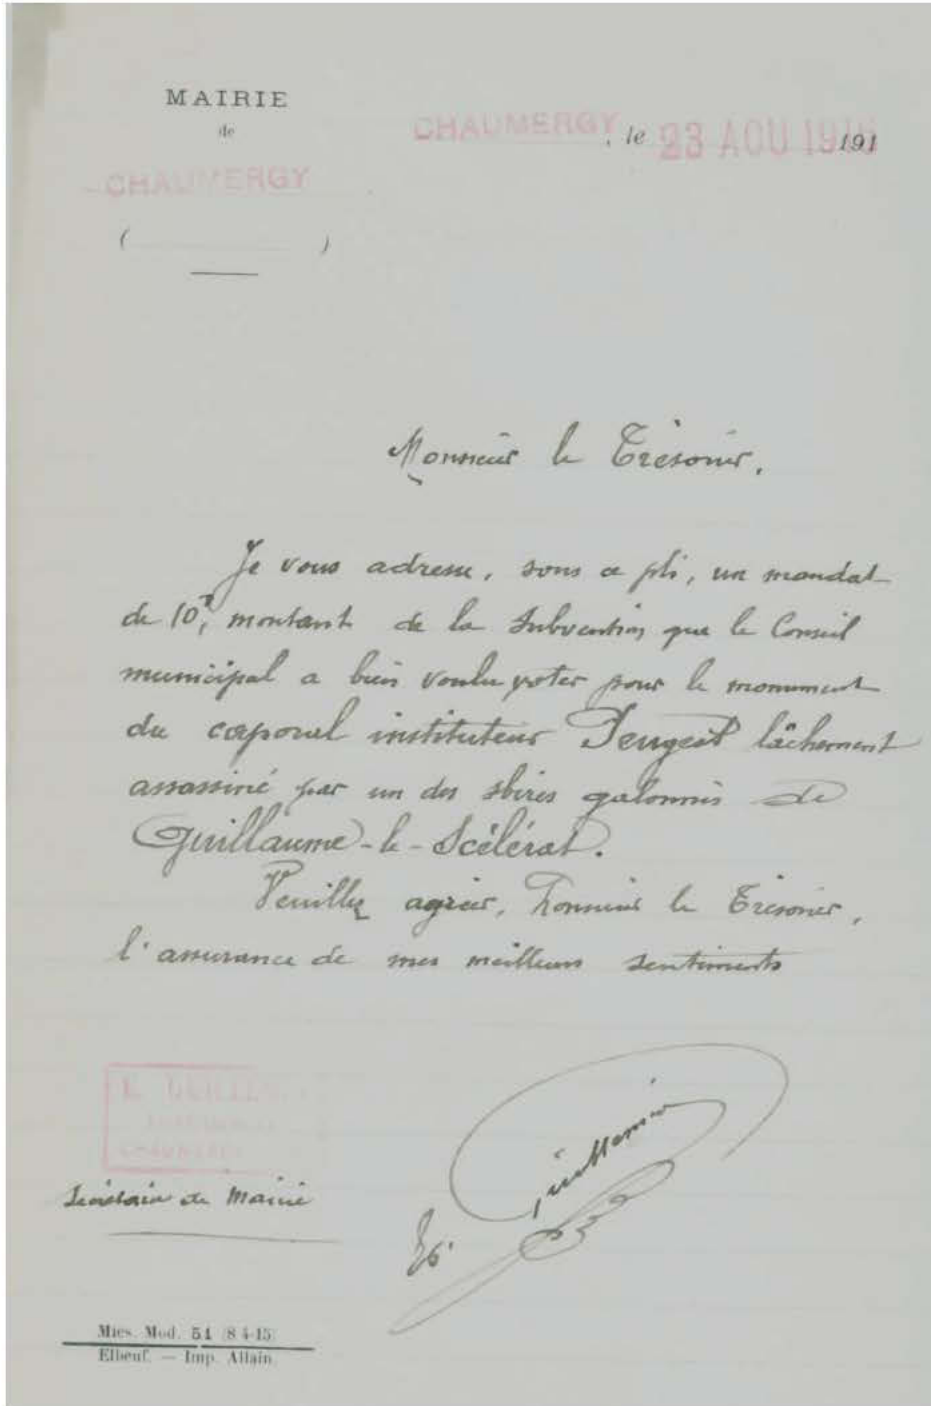 MAIRIE
de
CHAUMERGY
CHAUMERGY, le 23 AOU 1916 191
( )
Monsieur le Trésorier,
Je vous adresse, sous ce pli, un mandat
de 10f, montant de la subvention que le Conseil
municipal a bien voulu voter pour le monument
du caporal instituteur Peugeot lâchement
assassiné par un des sbires galonnés de
Guillaume-le-Scélérat.
Veuillez agréer, Monsieur le Trésorier,
l'assurance de mes meilleurs sentiments
Secrétaire de Mairie
Guillemin
Mies. Mod. 51 (8-4-15)
Elbeuf. — Imp. Allain.